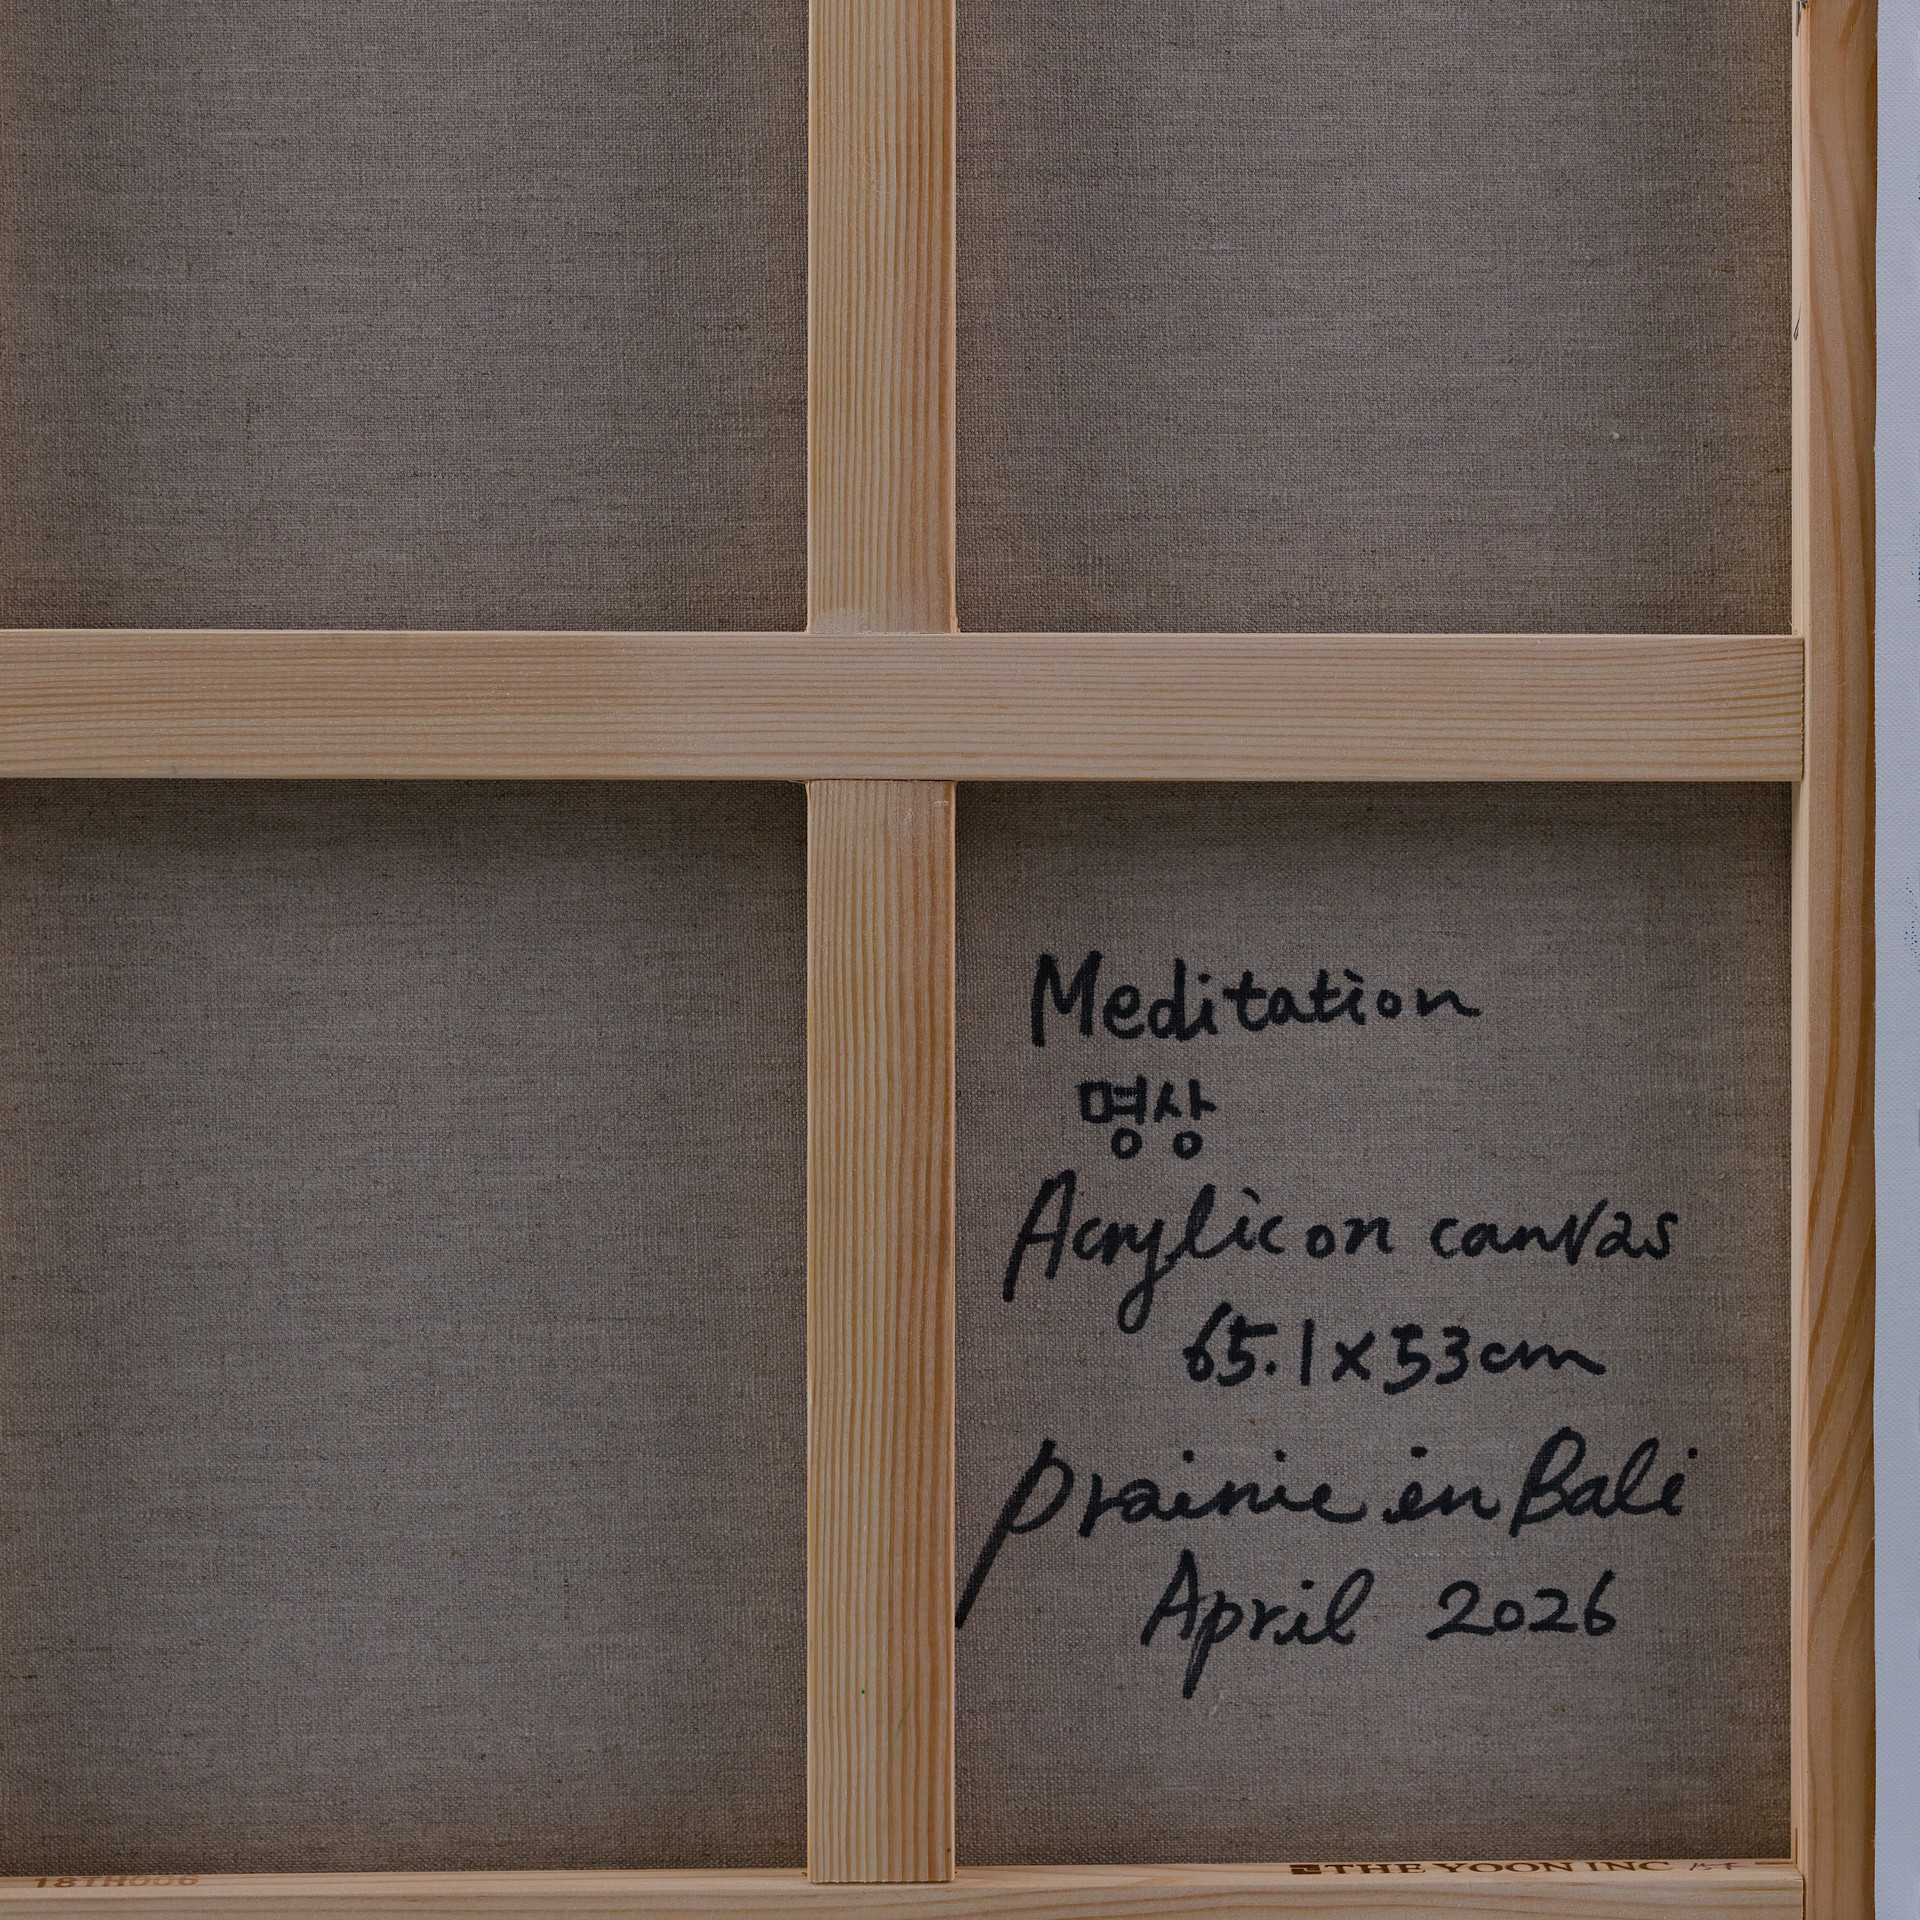 Meditation
명상
Acrylic on canvas
65.1x53cm
prairie in Bali
April 2026
THE YOON INC
18TH006